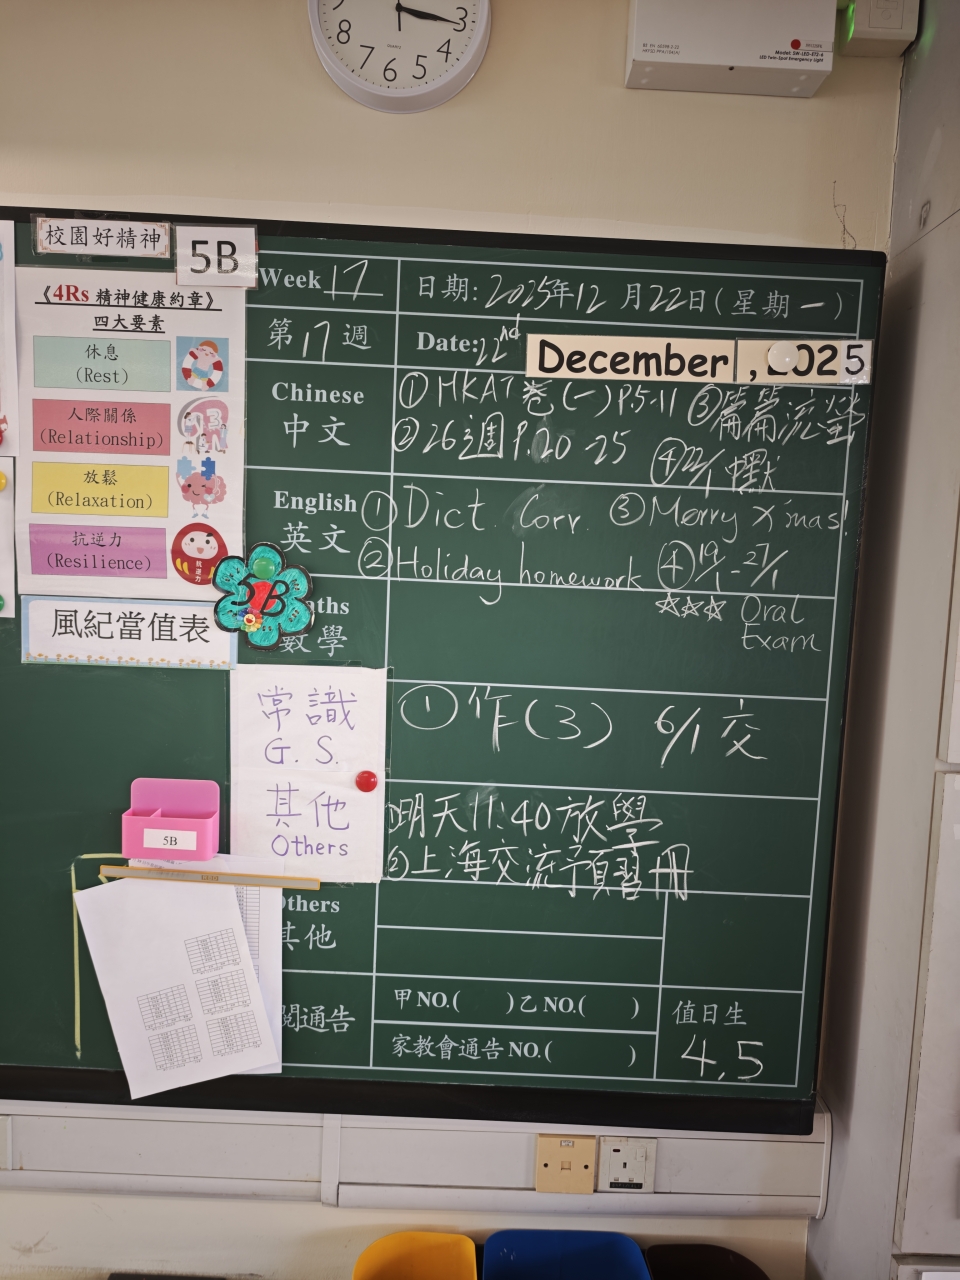 3
4
5
6
7
8
Model: SW-LED-072-6
LED Twin-Spot Emergency Light
校園好精神
5B
《4Rs 精神健康約章》
四大要素
休息
(Rest)
人際關係
(Relationship)
放鬆
(Relaxation)
抗逆力
(Resilience)
抗逆力
風紀當值表
5B
Week 17
日期: 2025年12月22日(星期一)
第17週
Date: 22nd December, 2025
Chinese
中文
① HKAT卷(一) P.5-11 ③篇篇流螢
② 26週 P.20-25 ④22/1 中默
English
英文
① Dict. Corr. ③ Merry X'mas!
② Holiday homework ④ 19/1 - 27/1
☆☆☆ Oral
Exam
數學
常識
G.S.
① 作(3) 6/1 交
其他
Others
明天11:40放學
②上海交流予頁習冊
Others
其他
通告
甲NO.( )乙NO.( )
家教會通告NO.( )
值日生
4,5
5B